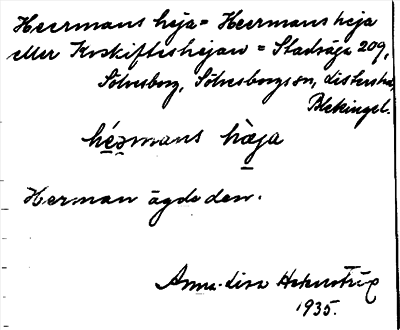 Heermans heja = Heermans heja
eller Kvskifteshejan = Stadsäga 209,
Sölvesborg, Sölvesborgs sn, Listers hd,
Blekinge l.
héəmans hàja
Herman ägde den.
Anna-Lisa
1935.